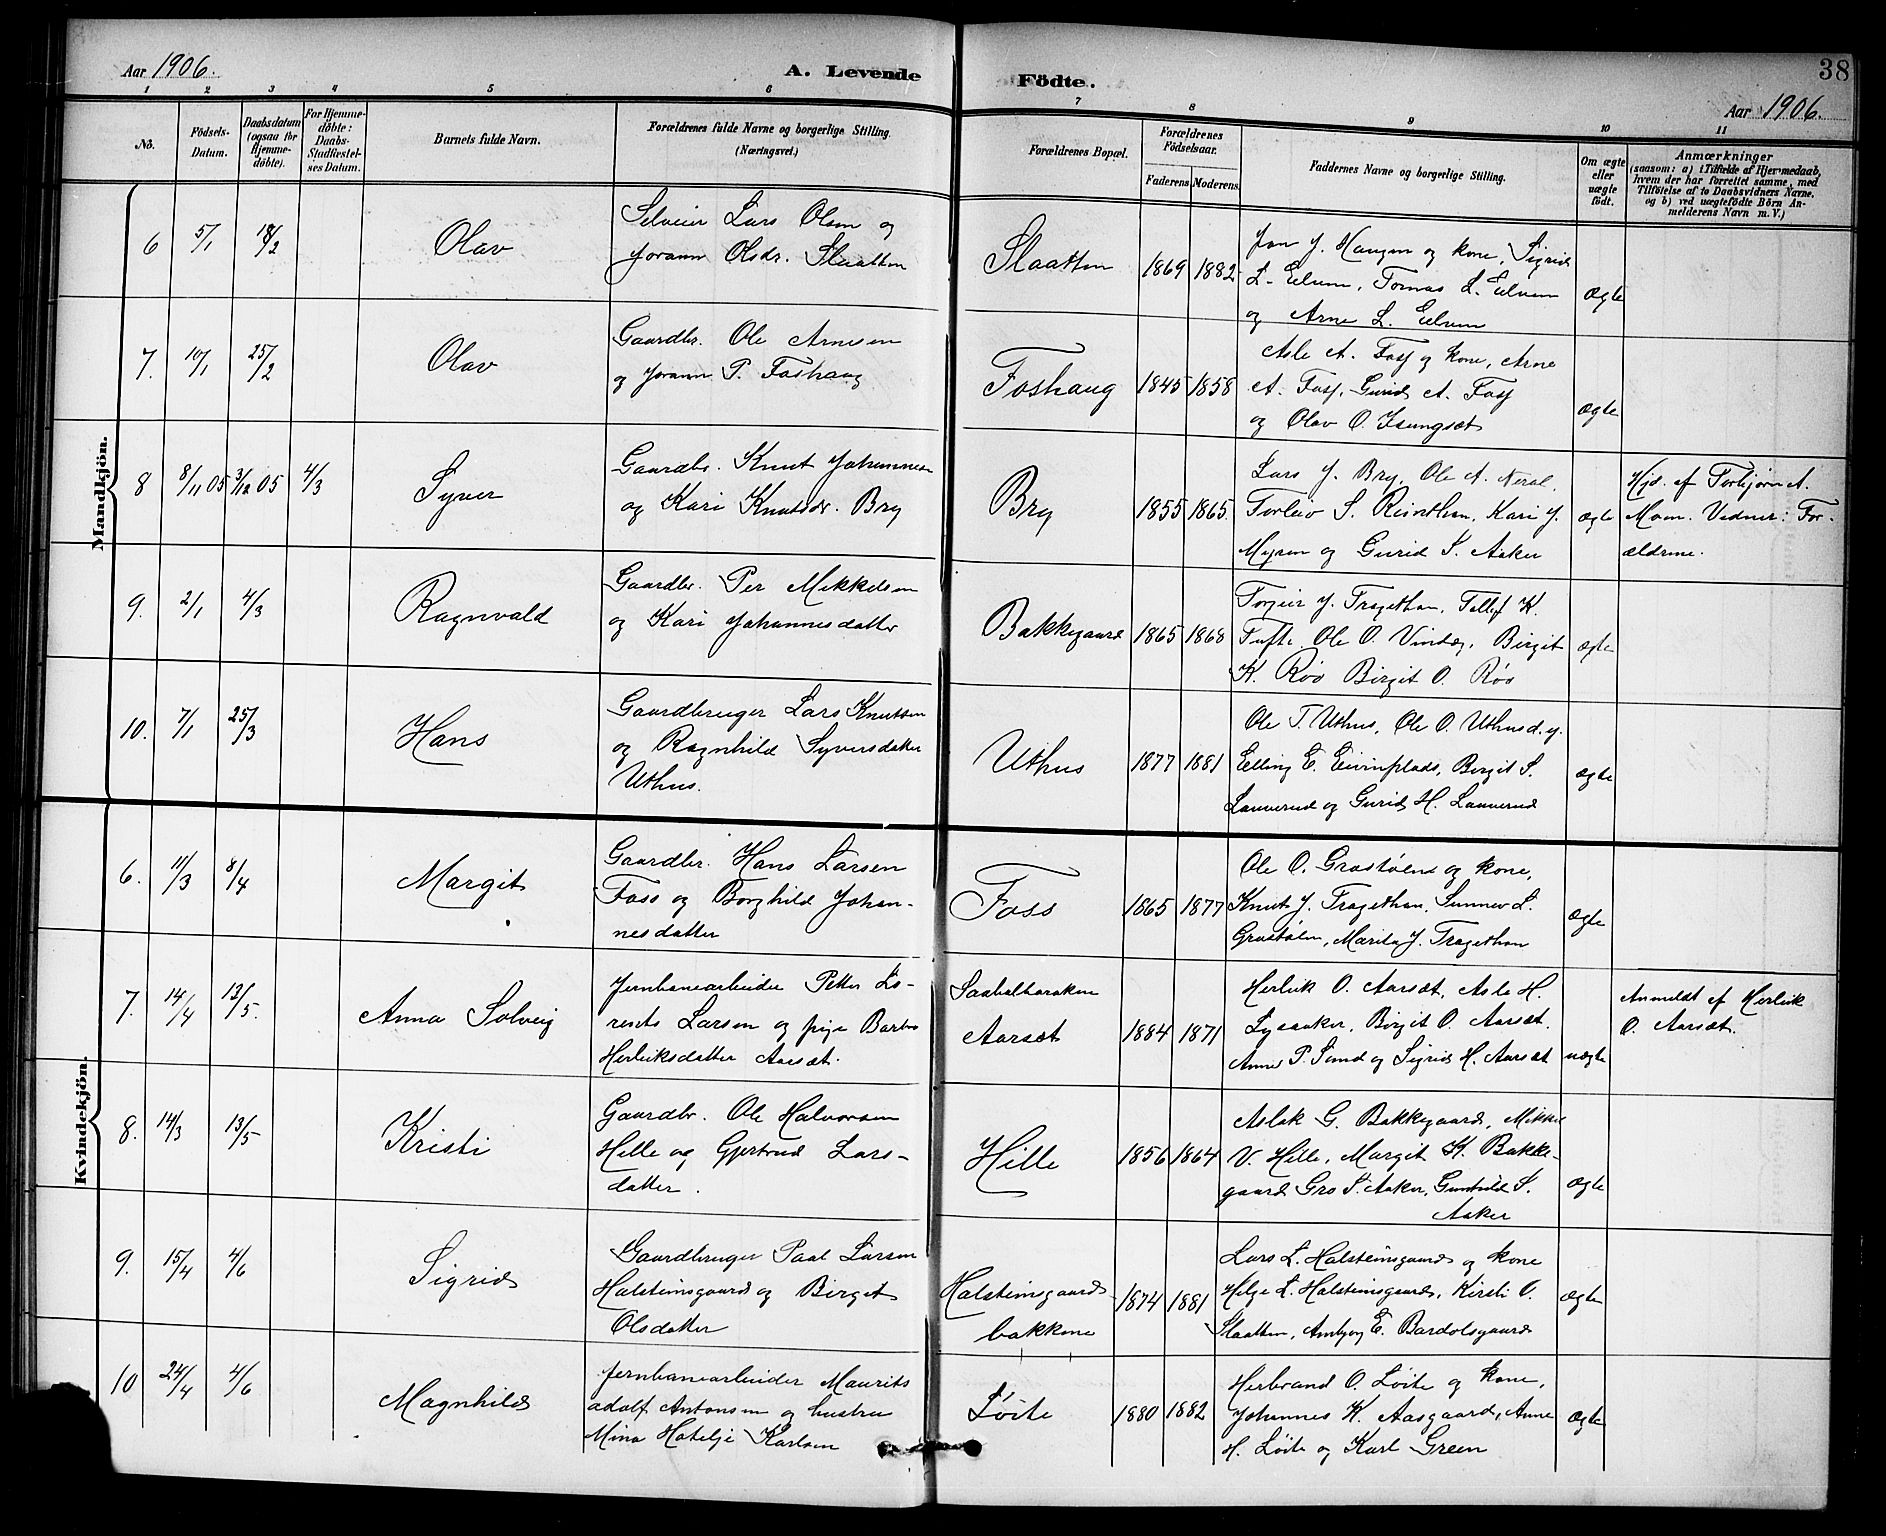 Aar 1906.
A. Levende
Födte.
38
Aar 1906.
1 2 3 4 5 6 7 8 9 10 11
No.
Födsels-
Datum.
Daabsdatum
(ogsaa for
Hjemme-
døbte).
For Hjemme-
døbte:
Daabs-
Stadfæstel-
ses Datum.
Barnets fulde Navn.
Forældrenes fulde Navne og borgerlige Stilling.
(Næringsvei.)
Forældrenes Bopæl.
Forældrenes
Födselsaar.
Faderens
Moderens.
Faddernes Navne og borgerlige Stilling.
Om ægte
eller
uægte
födt.
Anmærkninger
(saasom: a) i Tilfælde af Hjemmedaab,
hvem der har forrettet samme, med
Tilföielse af to Daabsvidners Navne.
og b) ved uægtefödte Börn An-
melderens Navn m. V.)
Mandkjön.
6 5/1 18/2 Olav
Selveier Lars Olsen og
Jorann Olsdr. Slaatten
Slaatten 1869 1882
Jon J. Haugen og kone, Sigrid
L. Eelvem, Tomas L. Eelvem
og Arne L. Eelvem
Ægte
7. 10/1 25/2 Olav
Gaardbr. Ole Arnesen
og Jorann P. Foshaug
Foshaug 1845 1858
Asle A. Foss og kone, Arne
A. Foss, Gurid A. Foss
og Olav O. Isungset
Ægte
8 8/11 05 3/12 05 4/3 Syver
Gaardbr. Knut Johannesen
og Kari Knutsdr. Bry
Bry 1855 1865.
Lars J. Bry, Ole A. Neral,
Torleiv S. Reinthon, Kari J.
Myren og Gurid S. Aaker
Ægte
Hjd. af Torbjørn A.
Moen. Vidner: For-
ældrene.
9. 2/1 4/3 Ragnvald
Gaardbr. Per Mikkelsen
og Kari Johannesdatter
Bakkegaard 1865 1868
Torgeir J. Tragethon, Tellef K.
Tufte, Ole O. Vindeg, Birgit
K. Röo Birgit O. Röo
ægte
10. 7/1 25/3 Hans
Gaardbruger Lars Knutsen
og Ragnhild Syversdatter
Uthus.
Uthus 1877 1881
Ole T. Uthus, Ole O. Uthus d.y.
Elling E. Eivinplads, Birgit S.
Lauverud og Gurid H. Lauverud
Ægte
Kvindekjön.
6. 11/3 8/4 Margit
Gaardbr. Hans Larsen
Foss og Borghild Johan-
nesdatter
Foss 1865 1877
Ole O. Grøstølen og kone,
Knut J. Tragethon, Sunnev L.
Grøstølen, Marita J. Tragethon
Ægte
7. 14/4 13/5. Anna Solveig
Jernbanearbeider Petter Lo-
rents Larsen og pige Barbro
Herleiksdatter Aarset.
Aarset 1884 1871
Herleik O. Aarset, Asle H.
Lysaaker, Birgit O. Aarset,
Anne P. Sund og Sigrid H. Aarset
uægte
Anmeldt af Herleik
O. Aarset.
8. 14/3 13/5 Kristi
Gaardbr. Ole Halvorsen
Hille og Gjertrud Lars-
datter.
Hille 1856 1864
Aslak G. Bakkegaard, Mikkel
V. Hille, Margit K. Bakke-
gaard Gro S. Aaker, Gunhild S.
Aaker
Ægte
9. 15/4 4/6 Sigrid
Gaardbruger Paal Larsen
Halsteinsgaard og Birgit
Olsdatter
Halsteinsgaards
bakkene 1874 1881
Lars L. Halsteinsgaard og kone
Helge L. Halsteinsgaard, Kirsti O.
Slaatten, Ambjøg E. Bardolsgaard
Ægte
10 24/4 4/6 Magnhild
Jernbanearbeider Maurits
Adolf Antonsen og hustru
Mina Karlsen
Löite 1880 1882
Herbrand O. Löite og kone,
Johannes K. Aasgaard, Anne
H. Löite og Karl Green
Ægte